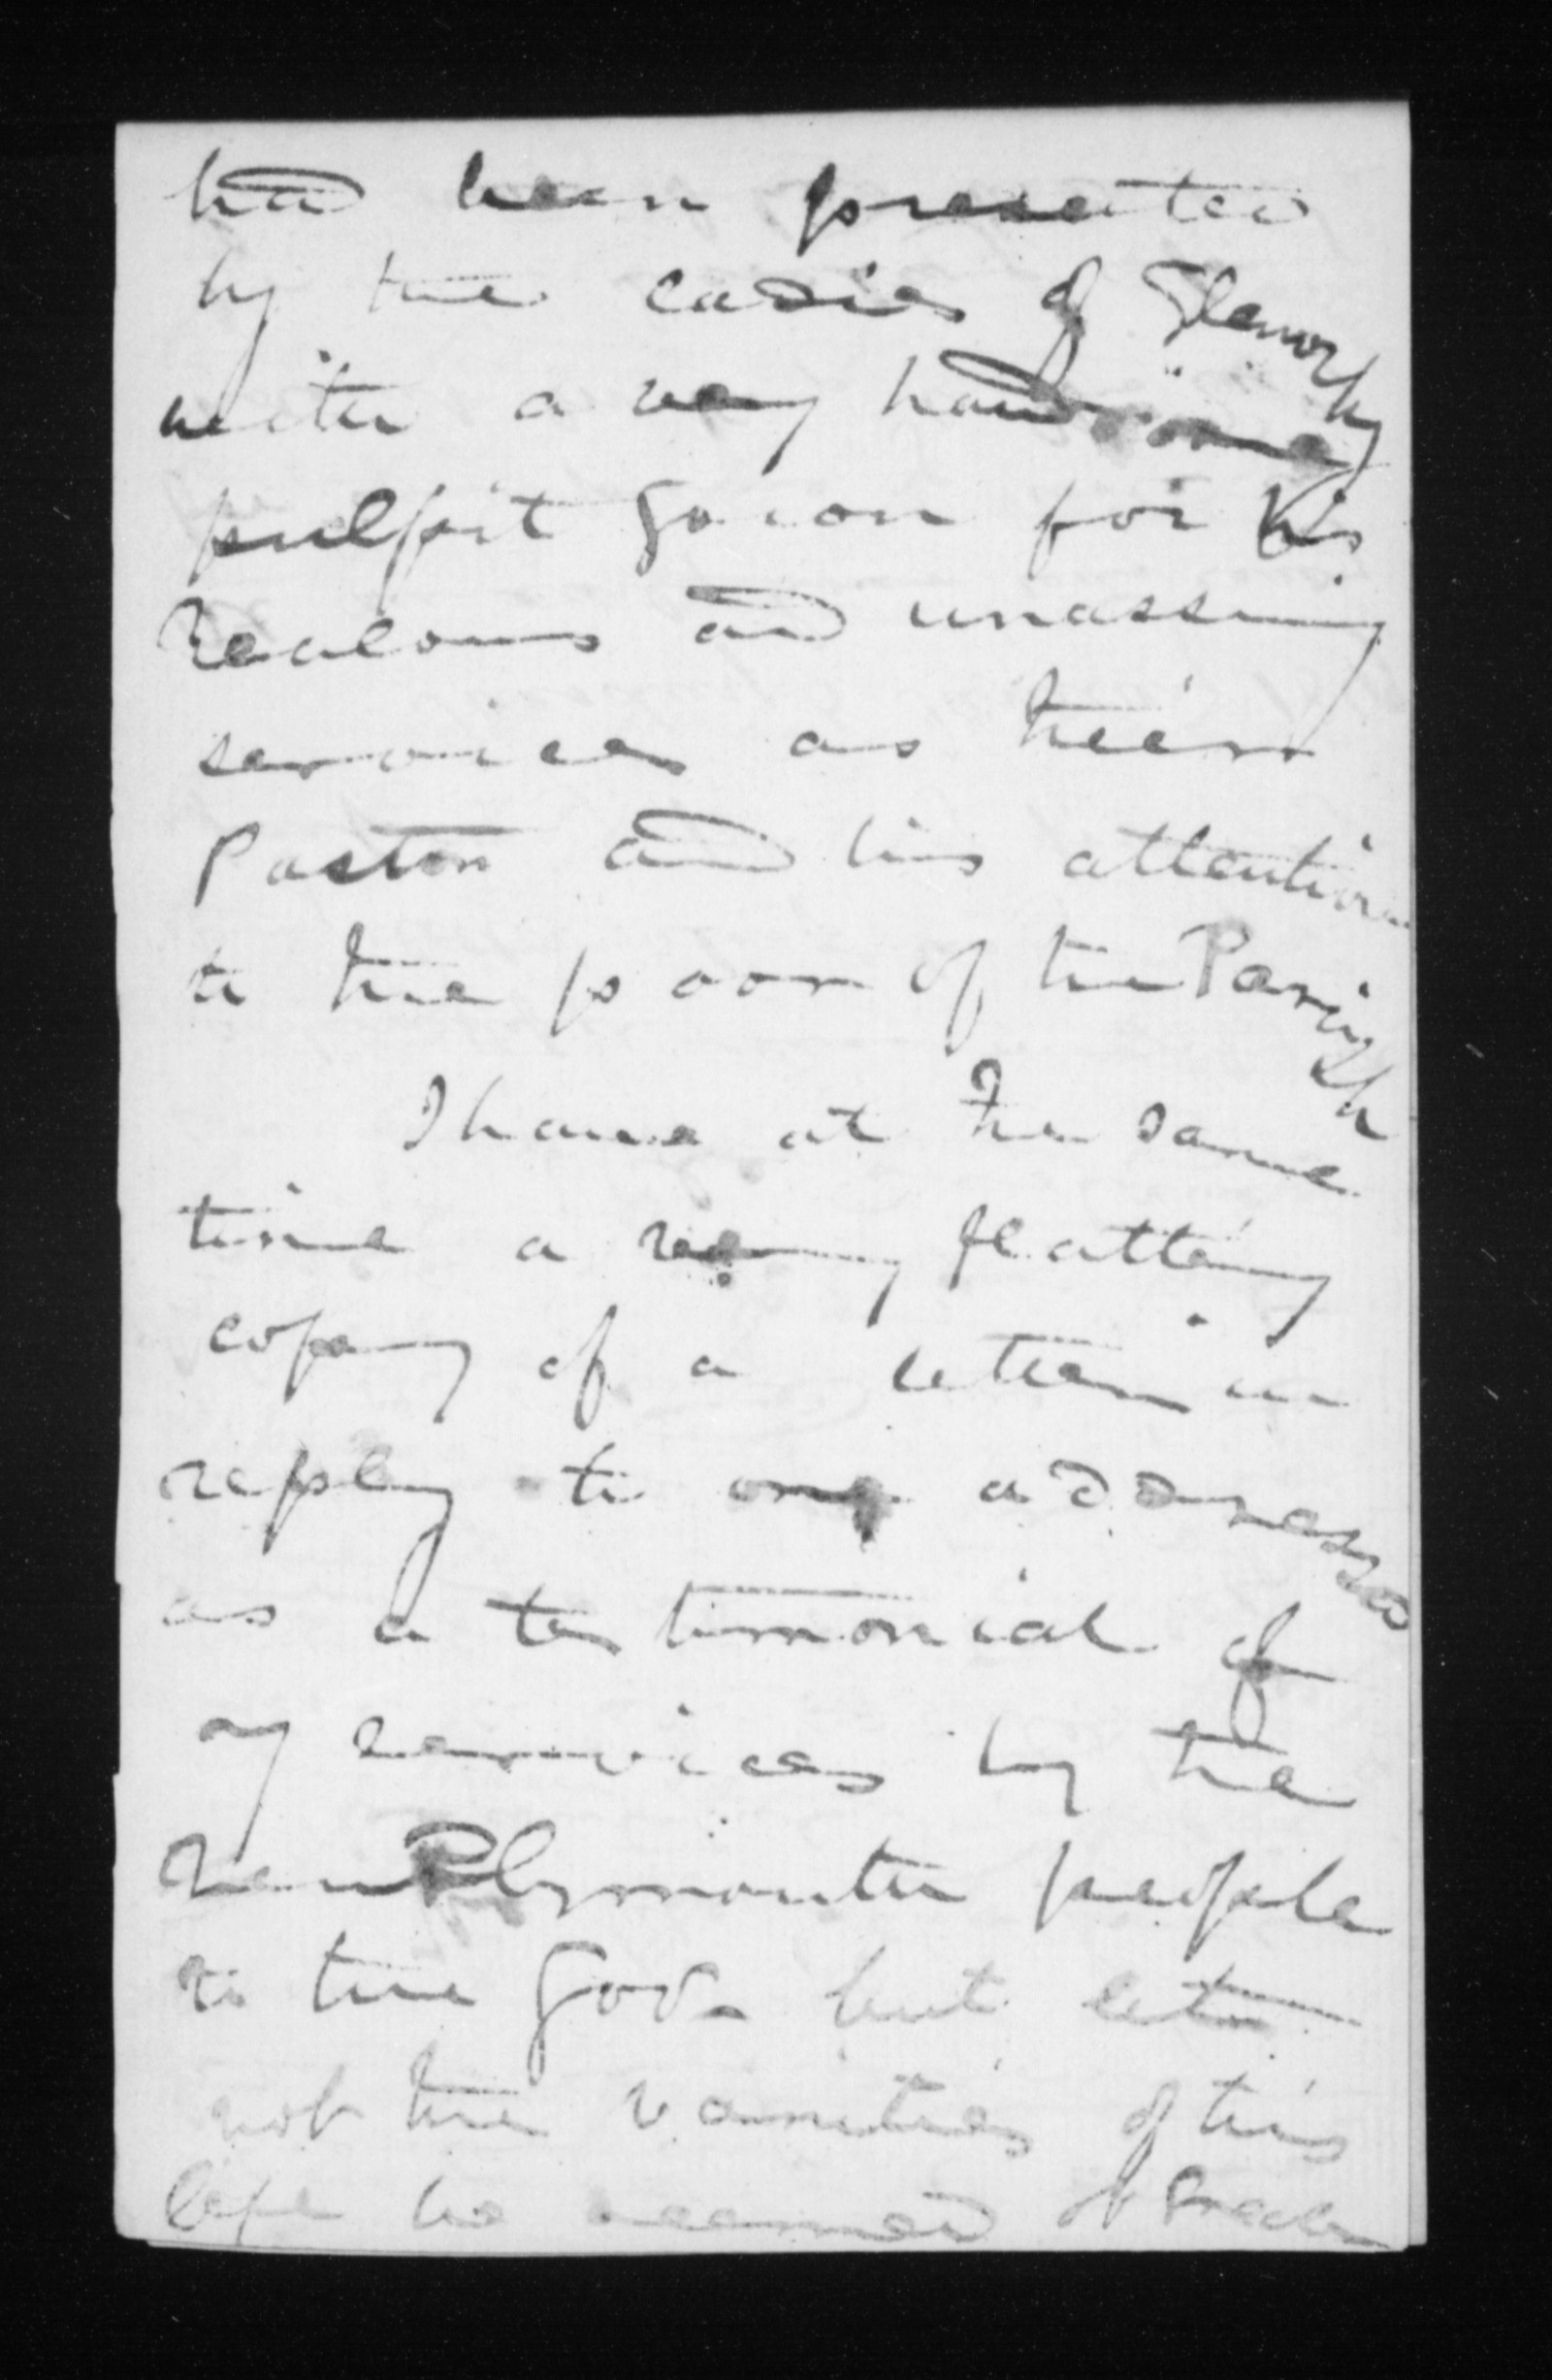 had been presented
by the Ladies of Glenorchy
with a very handsome
pulpit Gown for his
zealous and unassuming
services as their
Pastor and his attention
to the poor of the Parish
I have at the same
time a very flattering
copy of a letter in
reply to one addressed
as a testimonial of
my services by the
New Plymouth people
to the Gov. but let
not the vanities of this
life be seemed of